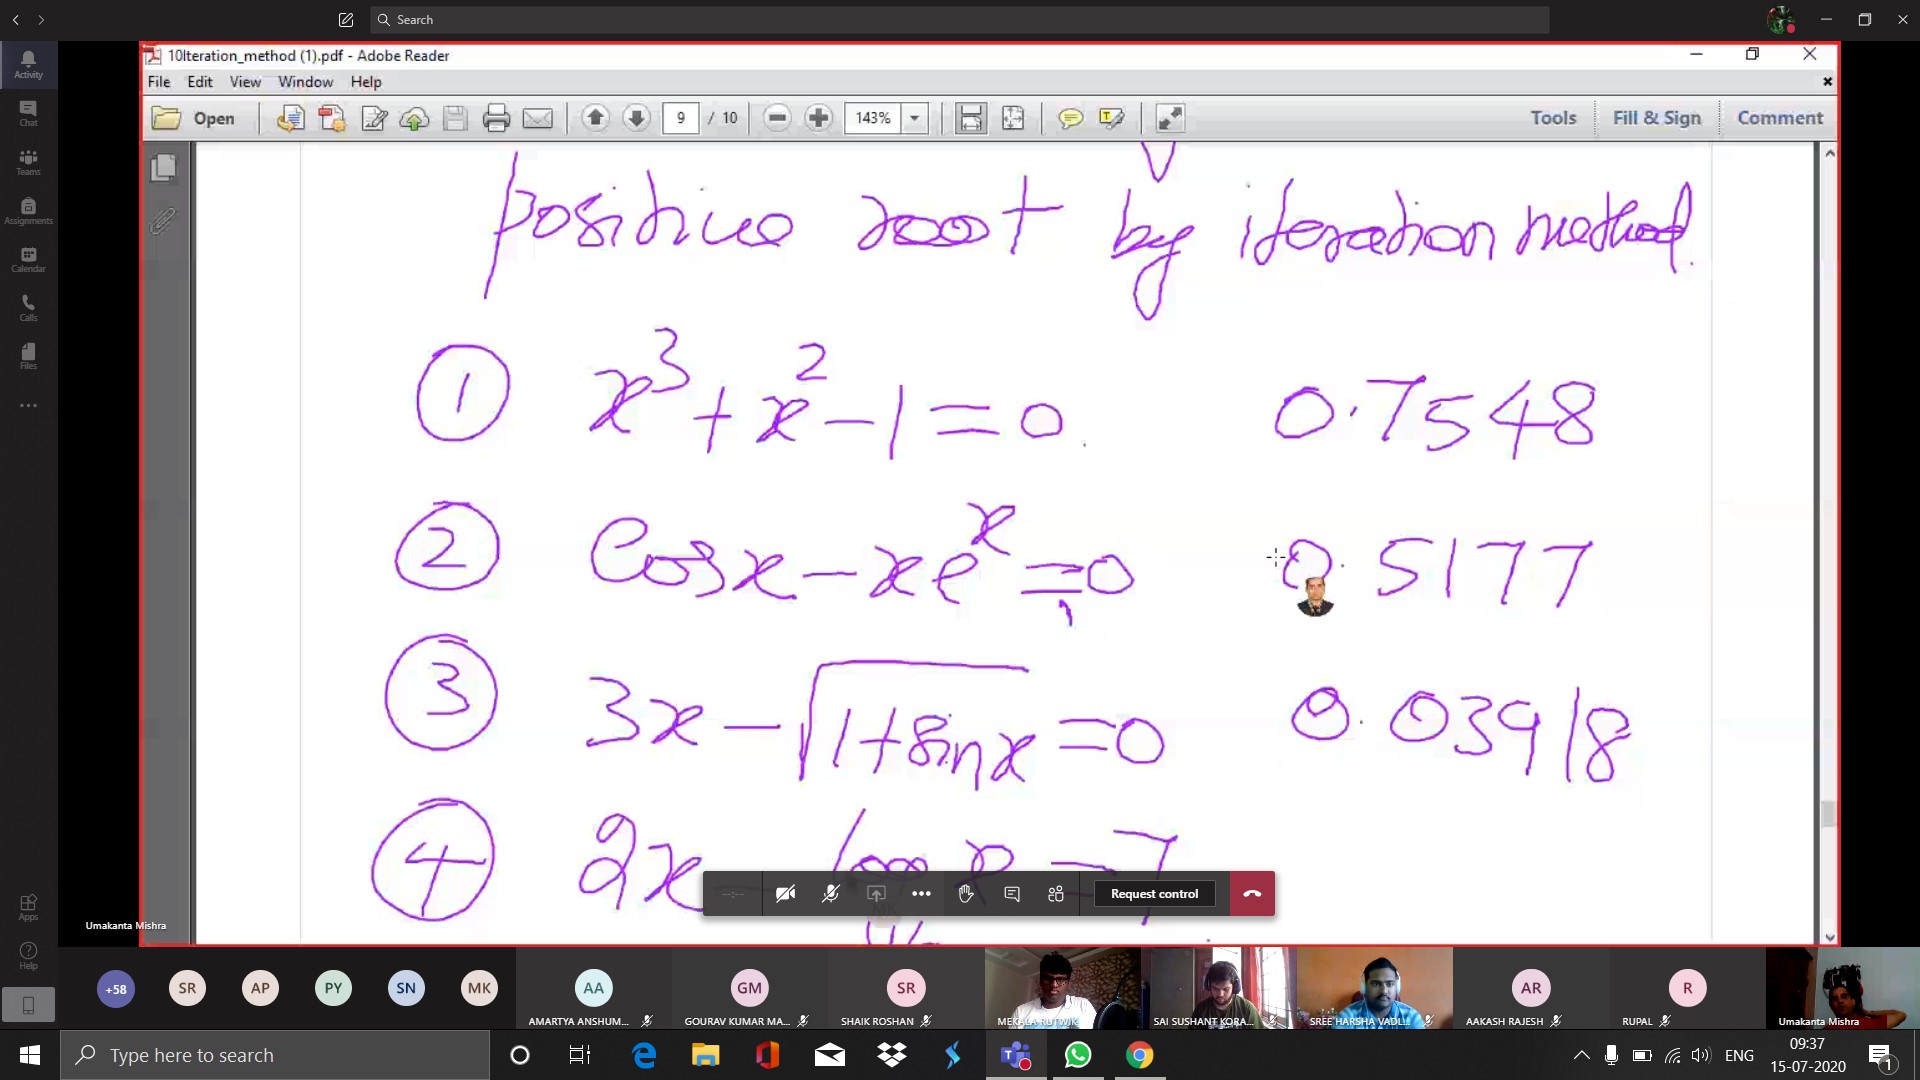 Search
Activity
Chat
Teams
Assignments
Calendar
Calls
Files
Apps
Help
10Iteration_method (1).pdf - Adobe Reader
File Edit View Window Help
Open 9 / 10 143% Tools Fill & Sign Comment
positive root by iteration method.
① x³ + x² − 1 = 0. 0.7548
② Cos x − x eˣ = 0 0.5177
③ 3x − √1+sin x = 0 0.03918
④ 2x
Request control
Umakanta Mishra
+58 SR AP PY SN MK AA GM SR AR R
AMARTYA ANSHUM... GOURAV KUMAR MA... SHAIK ROSHAN MEKALA RUTWIK SAI SUSHANT KORA... SREE HARSHA VADL... AAKASH RAJESH RUPAL Umakanta Mishra
Type here to search
ENG
09:37
15-07-2020
1